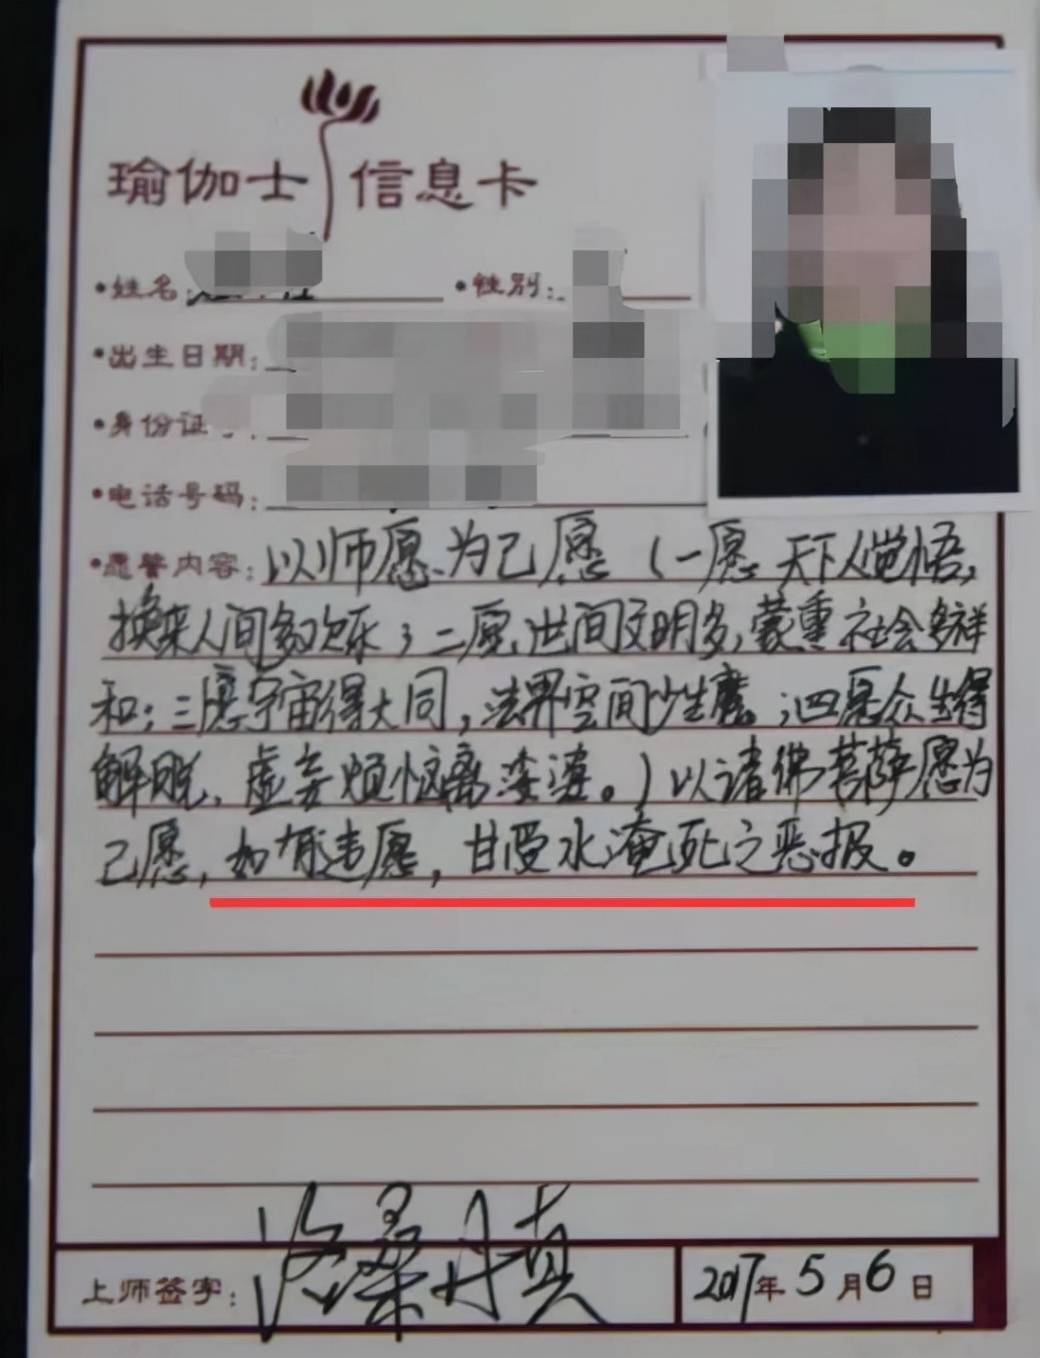 瑜伽士信息卡
•姓名:
•性别:
•出生日期:
•身份证
•电话号码:
•愿誓内容: 以师愿为己愿（一愿天下人觉悟,
换来人间多欢乐；二愿世间文明多,蒙熏社会多祥
和；三愿宇宙得大同,法界空间少生魔；四愿众生得
解脱,虚妄烦恼离娑婆。）以诸佛菩萨愿为
己愿,如有违愿,甘受水淹死之恶报。
上师签字: 洛桑丹真
2017年5月6日